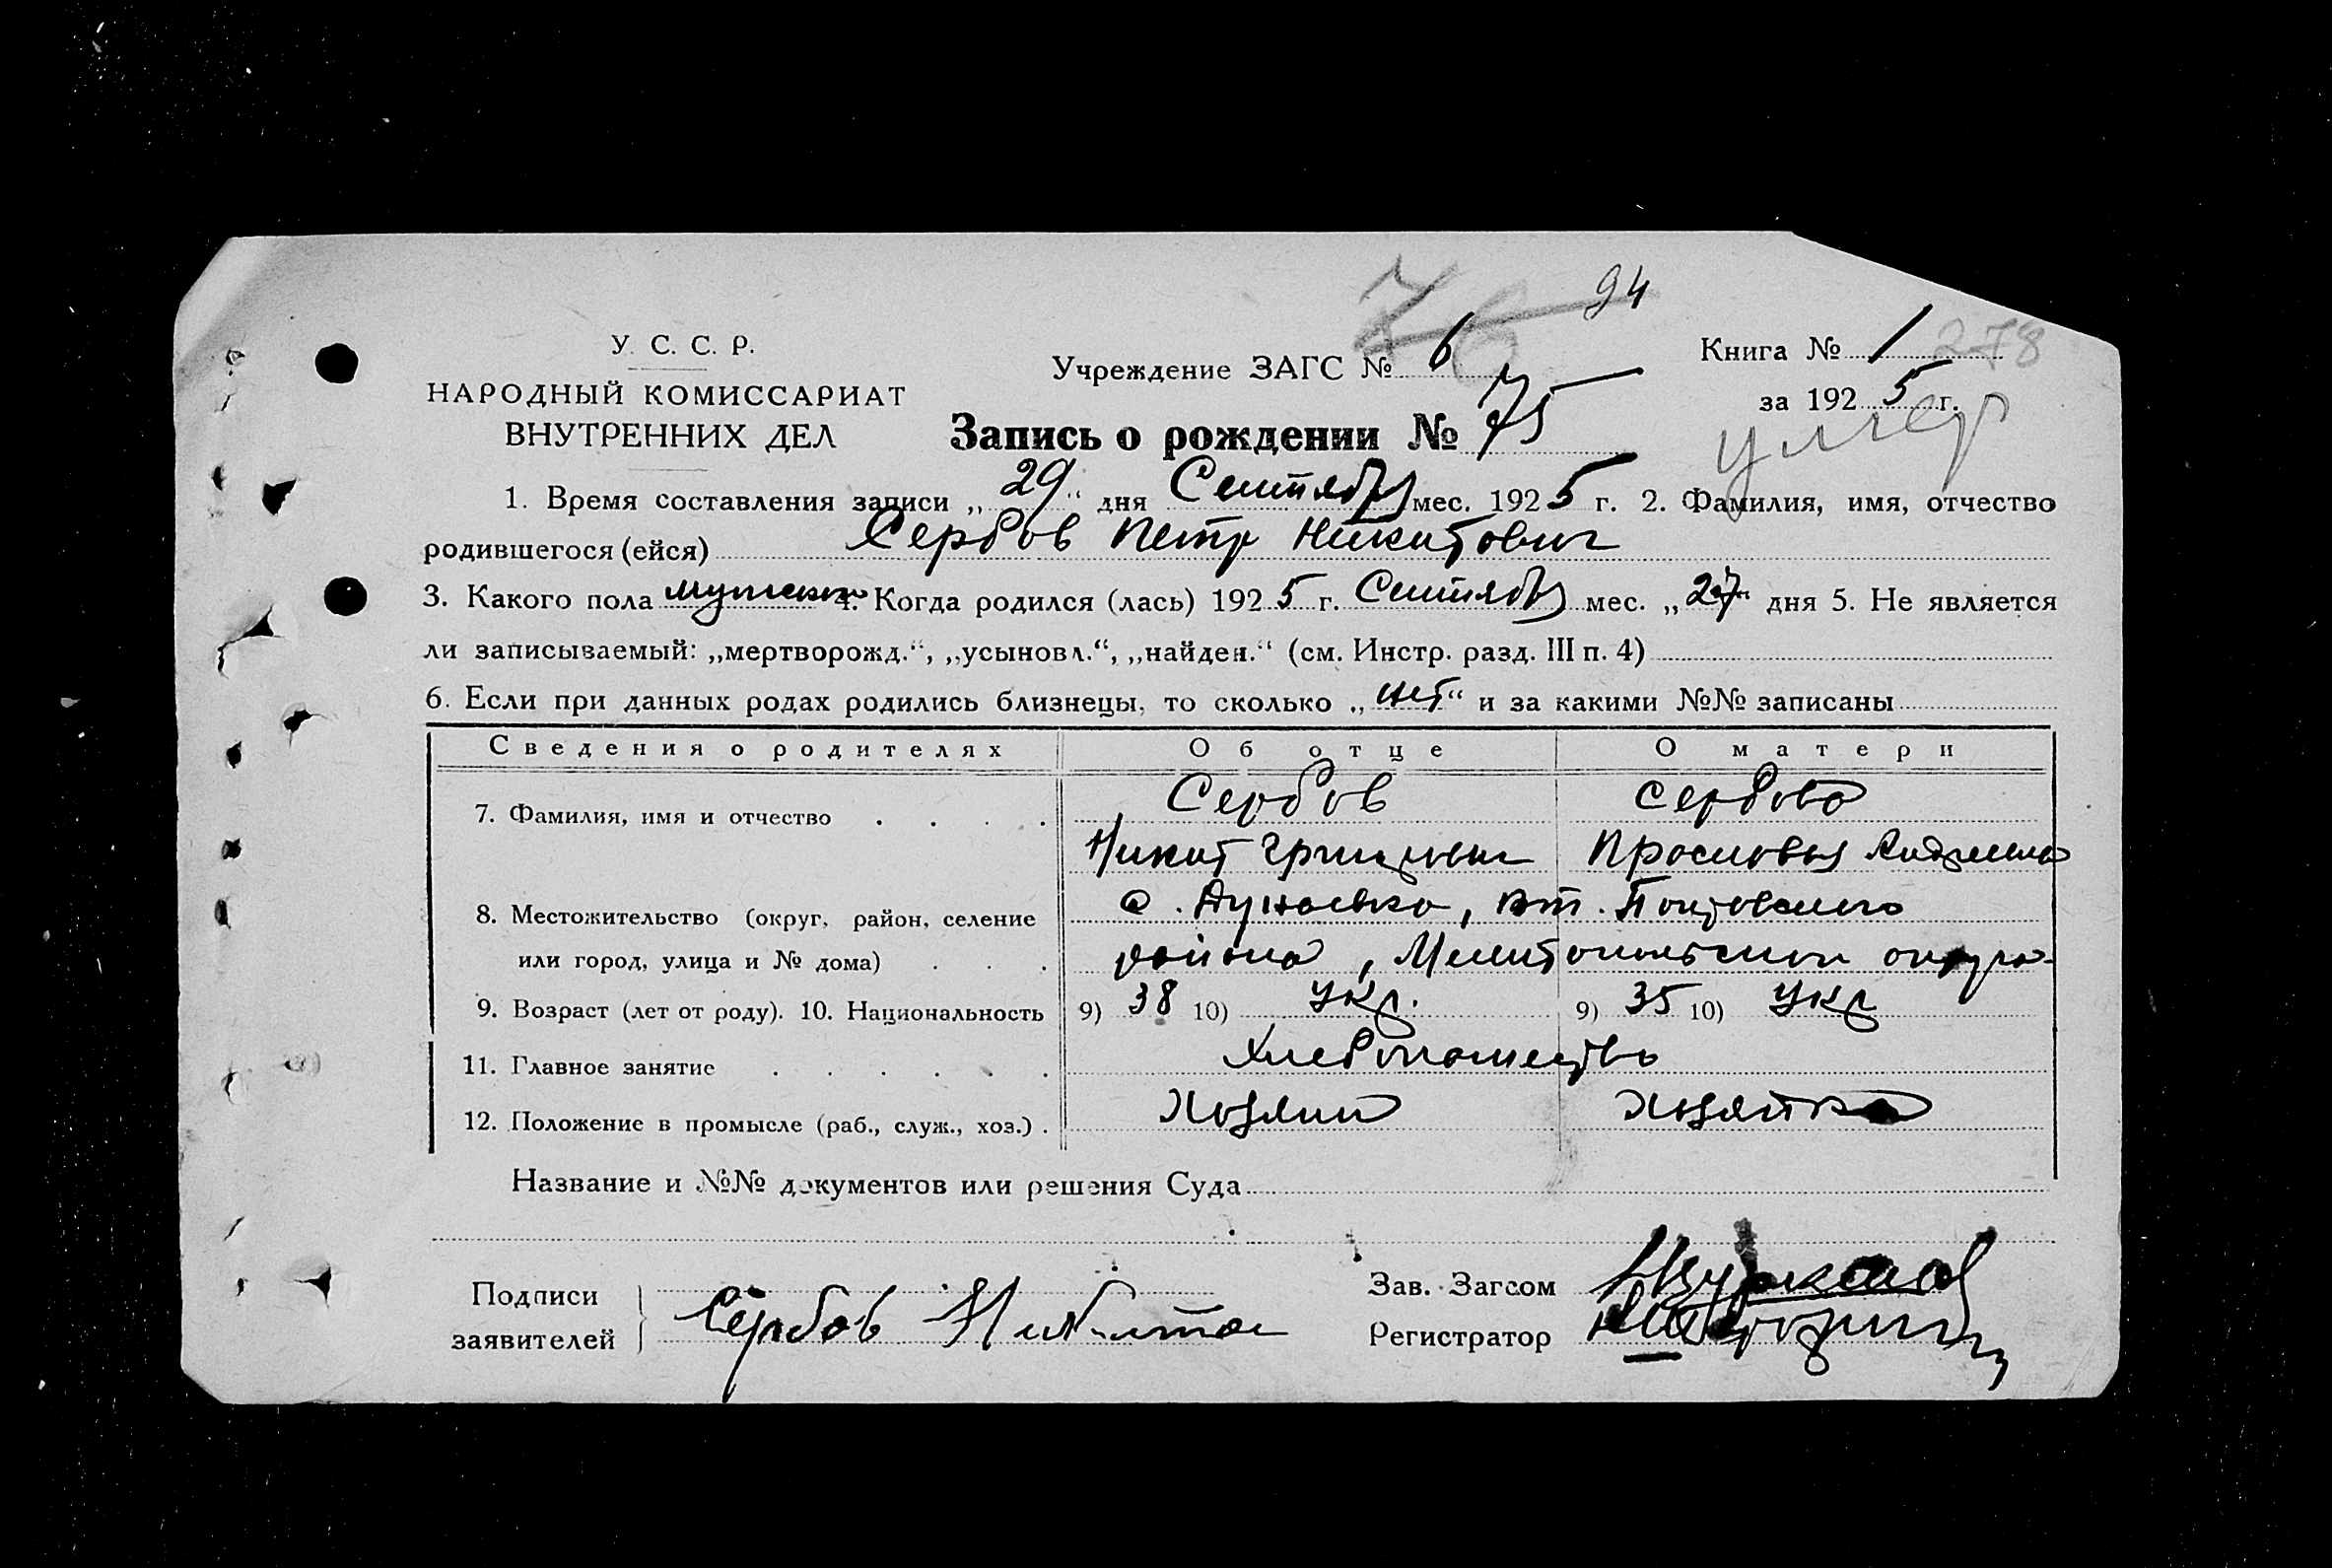 76 94
У. С. С. Р.
Учреждение ЗАГС № 6
Книга № 1 278
НАРОДНЫЙ КОМИССАРИАТ
за 1925 г.
ВНУТРЕННИХ ДЕЛ
Запись о рождении № 75
умер
1. Время составления записи „29“ дня Сентября мес. 1925 г. 2. Фамилия, имя, отчество
родившегося (ейся) Сербов Петр Никитович
3. Какого пола мужского 4. Когда родился (лась) 1925 г. Сентября мес. „27“ дня 5. Не является
ли записываемый: „мертворожд.“, „усыновл.“, „найден.“ (см. Инстр. разд. III п. 4)
6. Если при данных родах родились близнецы, то сколько „нет“ и за какими №№ записаны
Сведения о родителях Об отце О матери
7. Фамилия, имя и отчество . . . . Сербов Сербова
Никит Прасковья Андреевна
8. Местожительство (округ, район, селение с. Дунаевка,
или город, улица и № дома) . . . района, Мелитопольского округа
9. Возраст (лет от роду). 10. Национальность 9) 38 10) Укр. 9) 35 10) Укр
11. Главное занятие . . . . . . Хлебопашество
12. Положение в промысле (раб., служ., хоз.) . Хозяин Хозяйка
Название и №№ документов или решения Суда
Подписи
заявителей
Сербов Никита
Зав. Загсом
Регистратор